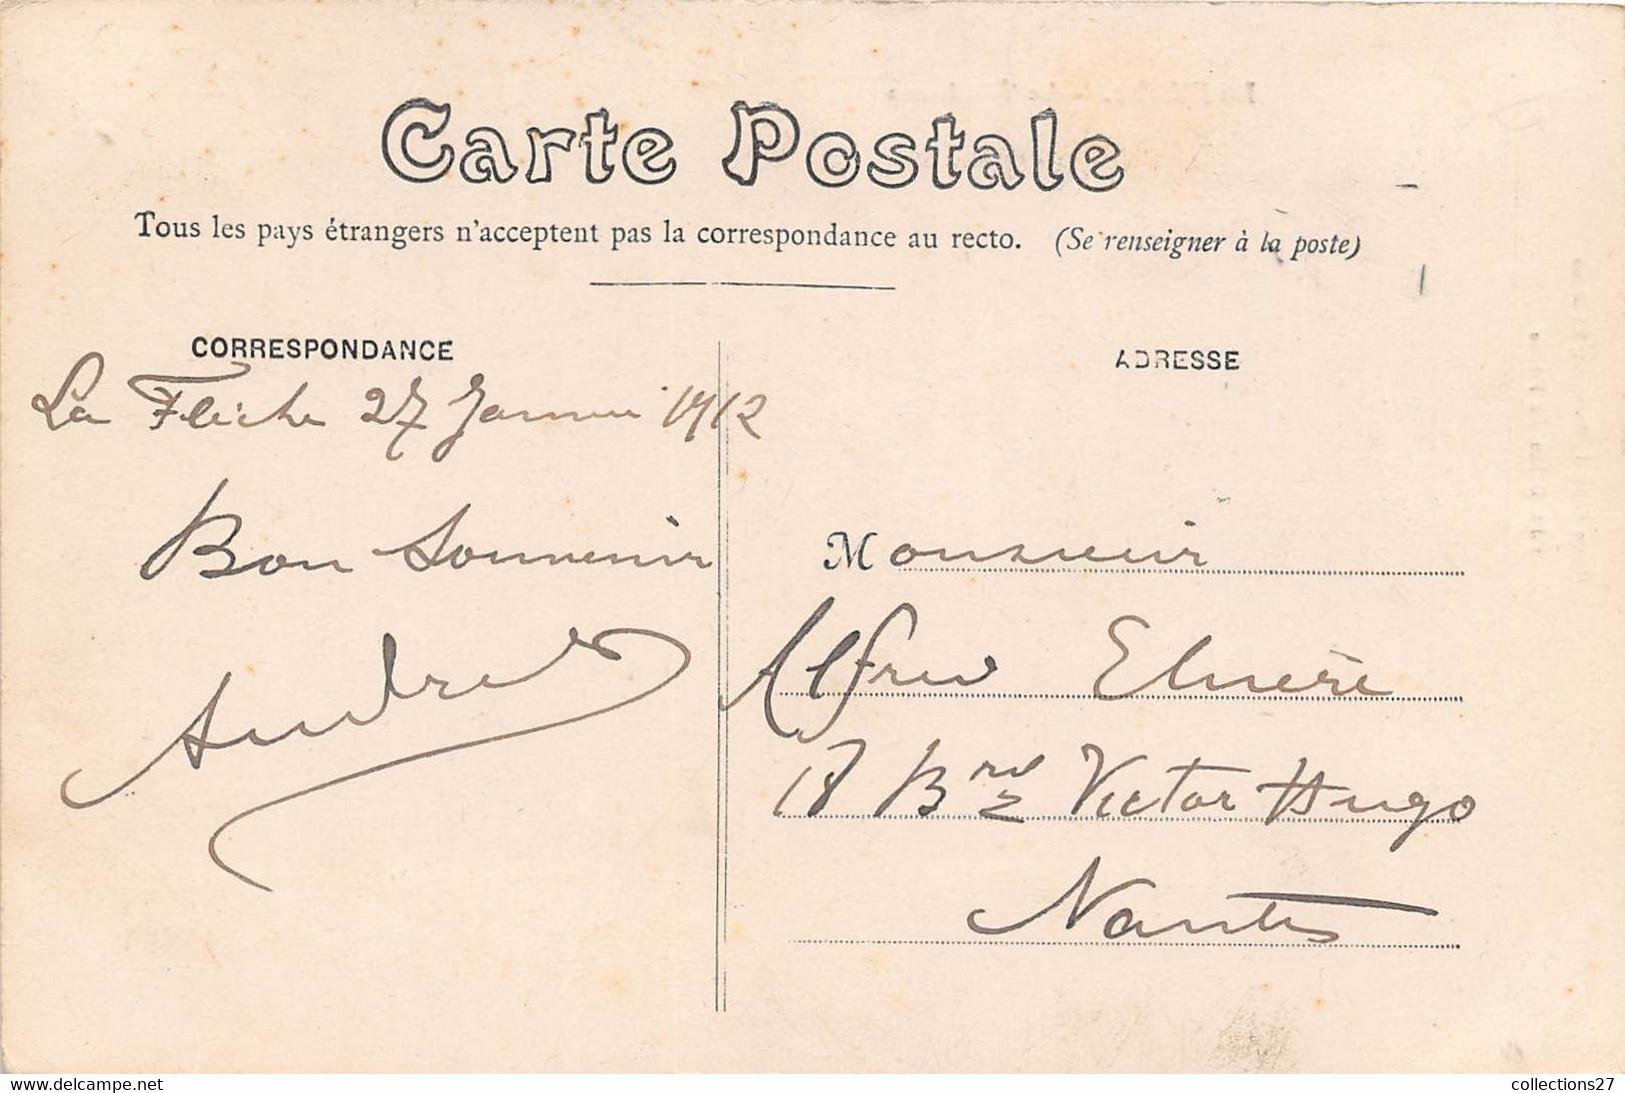 Carte Postale
Tous les pays étrangers n'acceptent pas la correspondance au recto. (Se renseigner à la poste)
CORRESPONDANCE
La Flèche 27 Janvier 1912
Bon Souvenir
André
ADRESSE
Monsieur
Alfred
Bard Victor Hugo
Nantes
www.delcampe.net
collections27